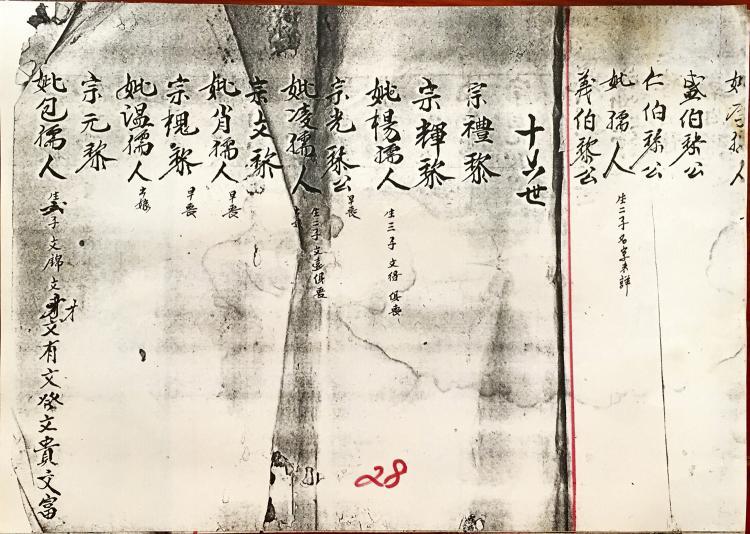 孺人
盛伯黎公
仁伯黎公
妣孺人 生二子名字未詳
義伯黎公
十六世
宗禮黎
宗輝黎
妣楊孺人 生三子 文 俱喪
宗光黎公 早喪
妣凌孺人 生二子文 俱喪
宗文黎
妣肖孺人 早喪
宗槐黎 早喪
妣溫孺人
宗元黎
妣包孺人 生 子文錦文才文有文發文貴文富
28